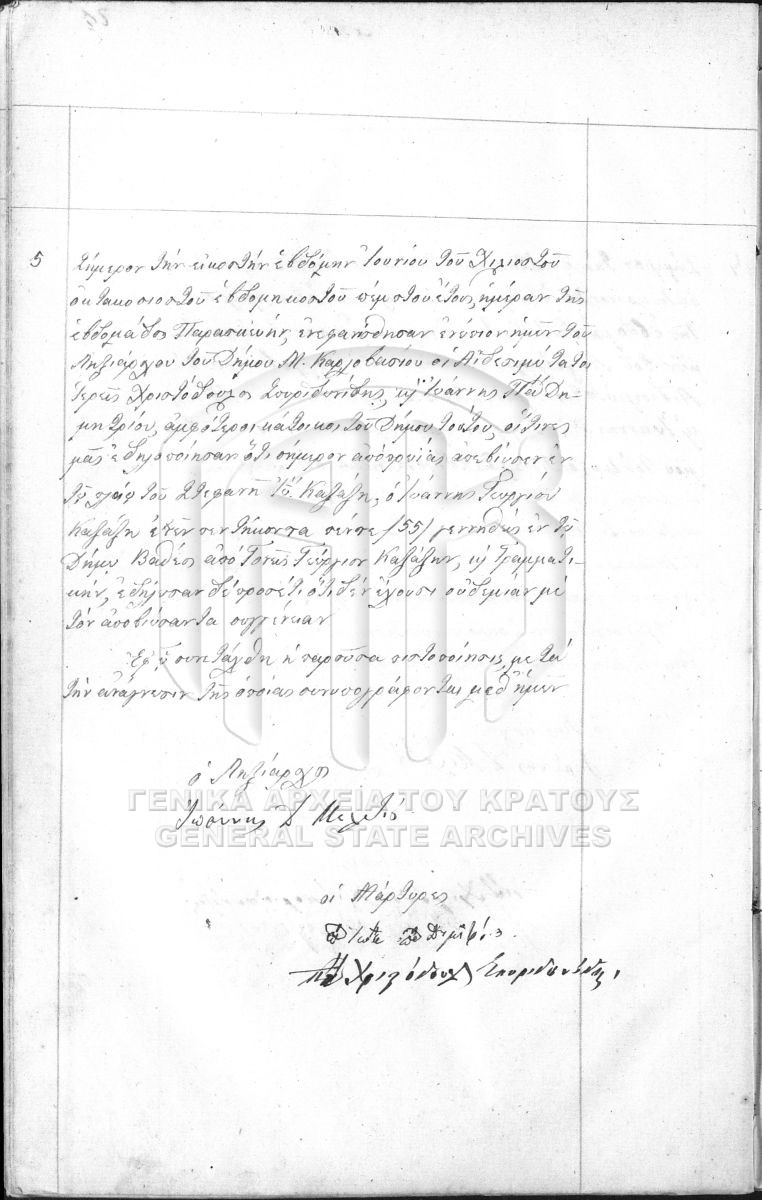 5
Σήμερον τὴν εἰκοστὴν ἑβδόμην Ἰουνίου τοῦ χιλιοστοῦ
ὀκτακοσιοστοῦ ἑβδομηκοστοῦ πέμπτου ἔτους, ἡμέραν τῆς
ἑβδομάδος Παρασκευὴν, ἐνεφανίσθησαν ἐνώπιον ἡμῶν τοῦ
Ληξιάρχου τοῦ Δήμου Μ. Καρλοβασίου οἱ Αἰδεσιμώτατοι
Ἱερεῖς Χριστόδουλος Σπυριδωνίδης, καὶ Ἰωάννης Πα Δη-
μητρίου, ἀμφότεροι κάτοικοι τοῦ Δήμου τούτου, οἵτινες
μᾶς ἐδηλοποίησαν ὅτι σήμερον ἀπὸ πρωΐας ἀπεβίωσεν ἐν
τοῦ Στεφανῆ Ἰω Καζάζη, ὁ Ἰωάννης Γεωργίου
Καζάζη ἐτῶν πεντήκοντα πέντε /55/ γεννηθεὶς ἐν τῷ
Δήμῳ Βαθέος ἀπὸ γονεῖς Γεώργιον Καζάζην, καὶ Γραμματι-
κὴν, ἐδήλωσαν δὲ προσέτι ὅτι δὲν ἔχουσι οὐδεμίαν μὲ
τὸν ἀποβιώσαντα συγγένειαν
Ἐφ' ᾧ συνετάχθη ἡ παροῦσα πιστοποίησις, μετὰ
τὴν ἀνάγνωσιν τῆς ὁποίας συνυπογράφονται μεθ' ἡμῶν
ὁ Ληξίαρχος
Ἰωάννης Δ
οἱ Μάρτυρες
Χριστόδουλος Σπυριδωνίδης
ΓΕΝΙΚΑ ΑΡΧΕΙΑ ΤΟΥ ΚΡΑΤΟΥΣ
GENERAL STATE ARCHIVES